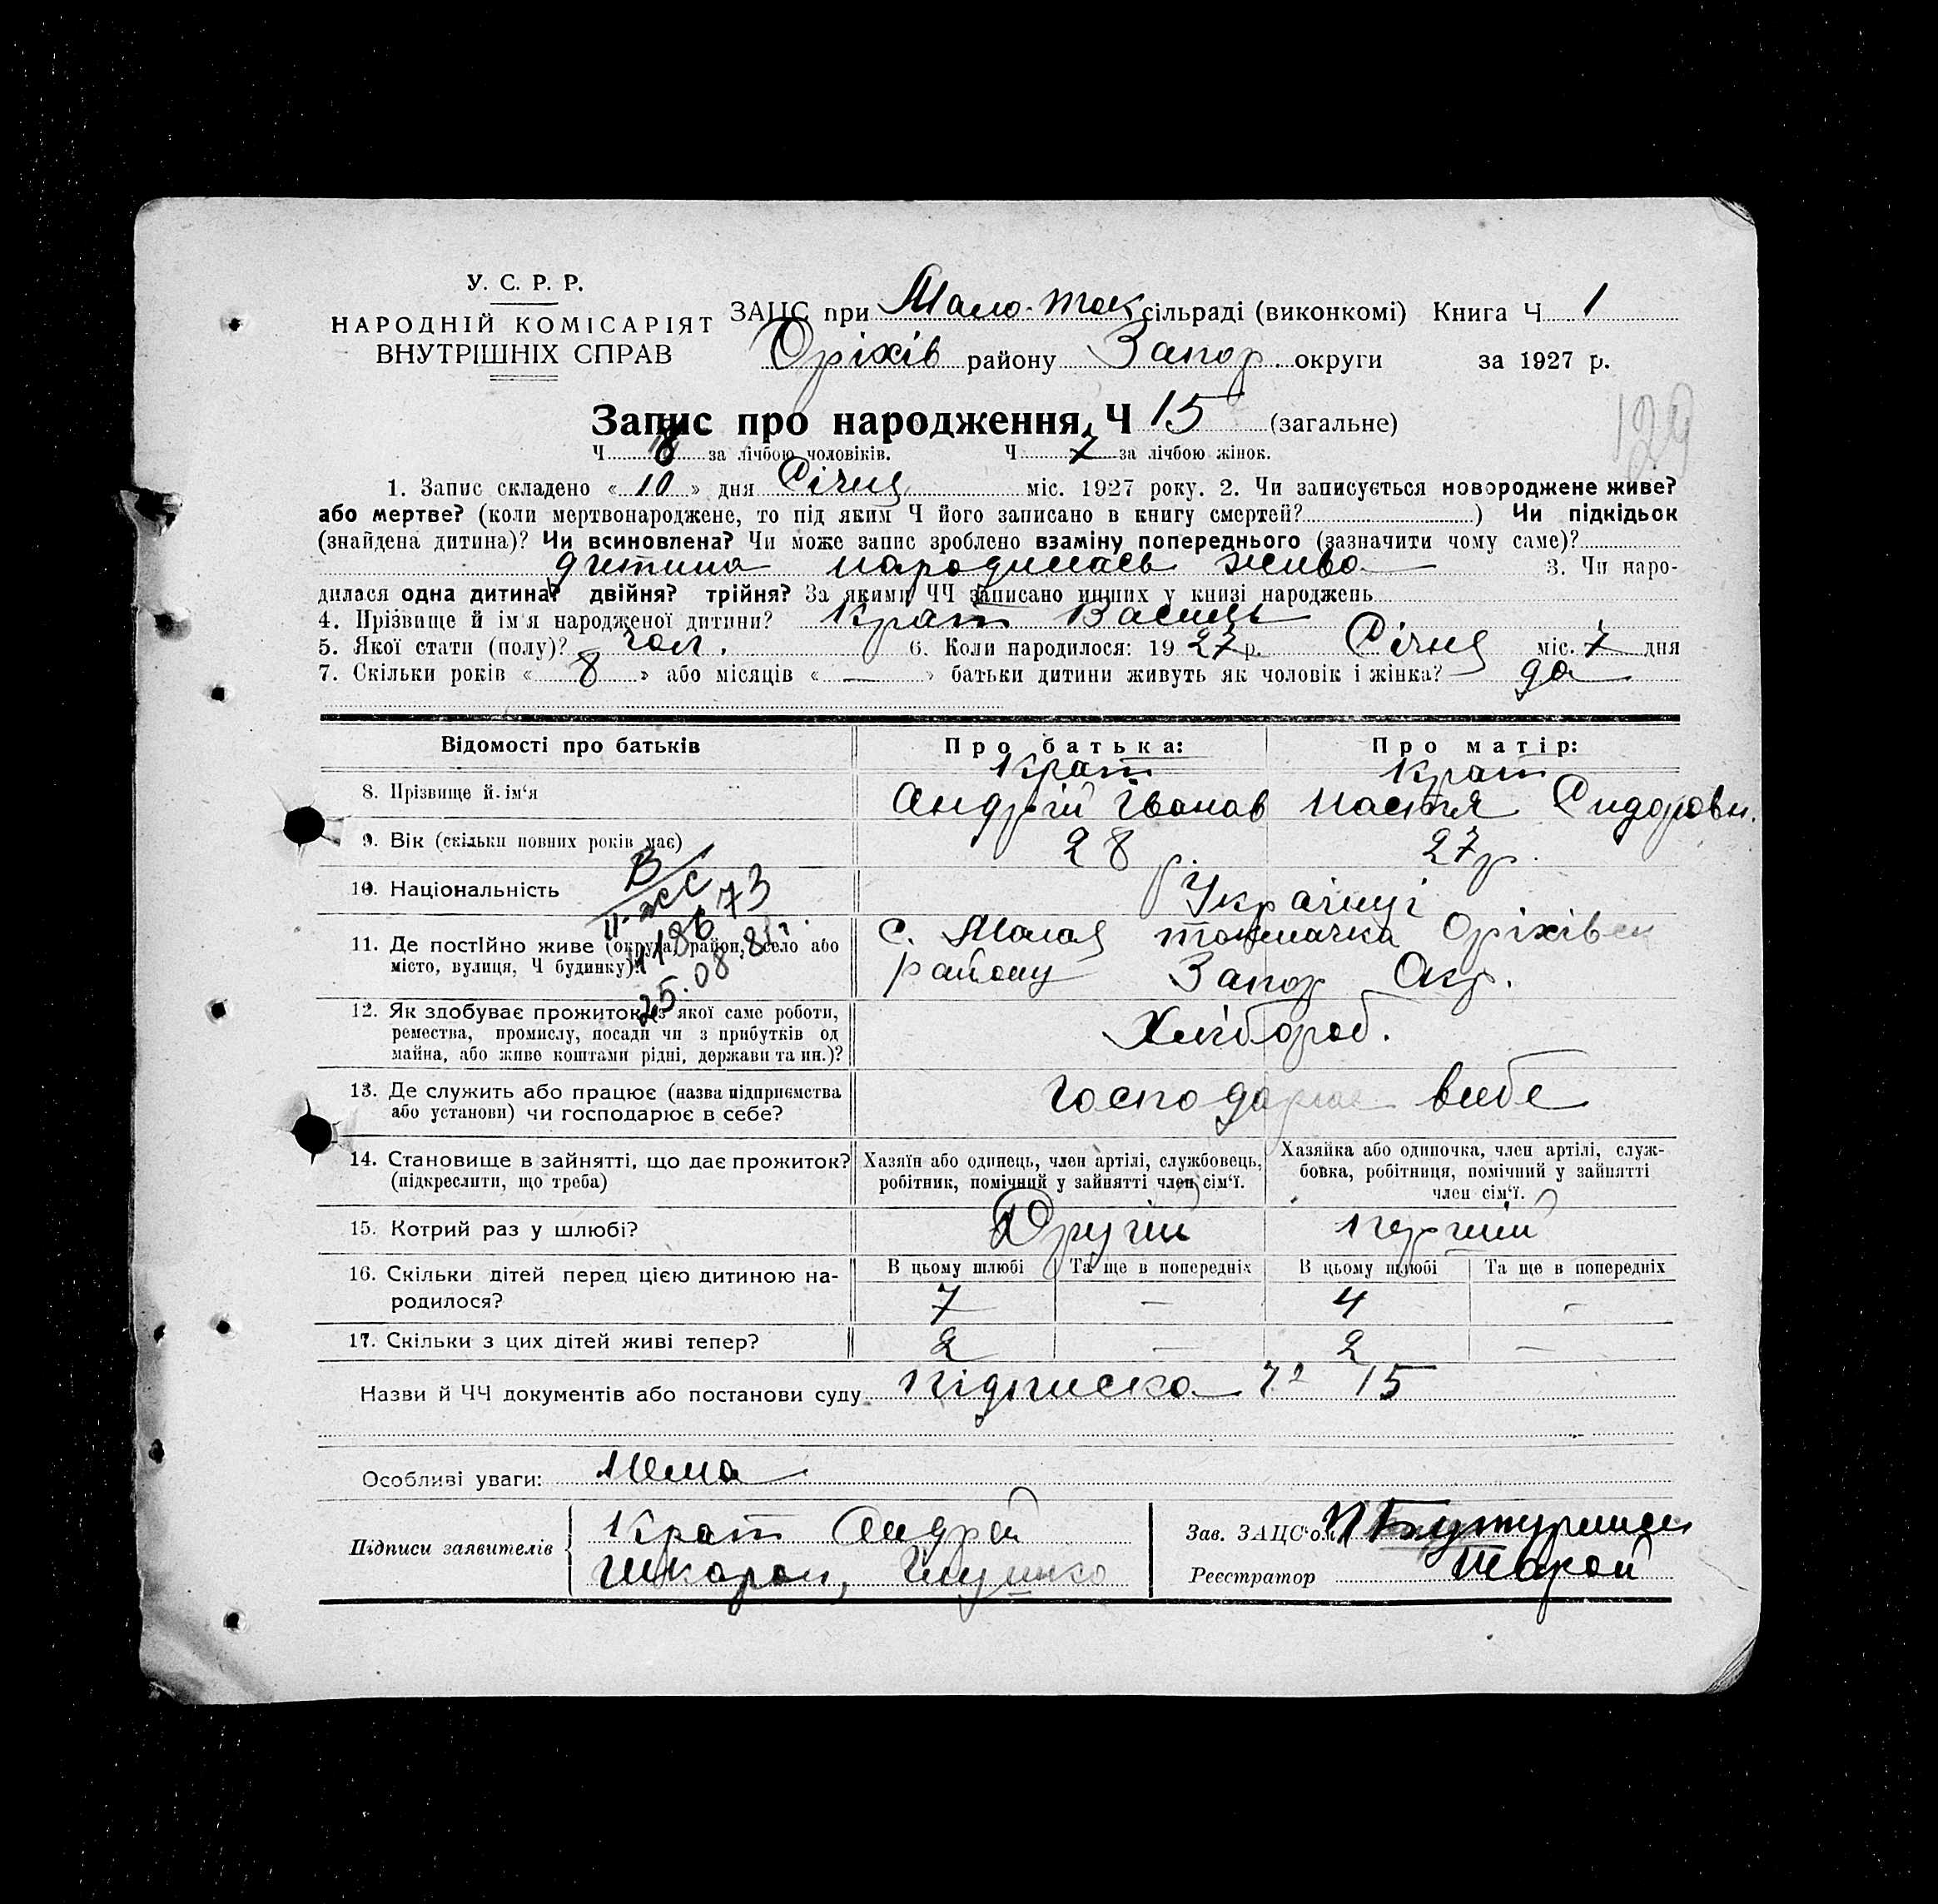 У. С. Р. Р.
НАРОДНІЙ КОМІСАРІЯТ
ВНУТРІШНІХ СПРАВ
ЗАЦС при Мало-Ток сільраді (виконкомі) Книга Ч 1
Оріхів району Запор. округи за 1927 р.
129
Запис про народження, Ч 15 (загальне)
Ч 8 за лічбою чоловіків. Ч 7 за лічбою жінок.
1. Запис складено « 10 » дня Січня міс. 1927 року. 2. Чи записується новороджене живе?
або мертве? (коли мертвонароджене, то під яким Ч його записано в книгу смертей? ) Чи підкідьок
(знайдена дитина)? Чи всиновлена? Чи може запис зроблено взаміну попереднього (зазначити чому саме)?
дитина народилась жива 3. Чи наро-
дилася одна дитина? двійня? трійня? За якими ЧЧ записано инших у книзі народжень
4. Прізвище й ім'я народженої дитини? Крат Василь
5. Якої стати (полу)? чол. 6. Коли народилося: 1927 р. Січня міс. 7 дня
7. Скільки років « 8 » або місяців « — » батьки дитини живуть як чоловік і жінка? да
Відомості про батьків Про батька: Про матір:
Крат Крат
8. Прізвище й ім'я Андрій Іванов Настя Сидоровн.
9. Вік (скільки повних років має) 28 р. 27 р.
10. Національність Українці
11. Де постійно живе (округа, район, село або с. Малая токмачка Оріхівск
місто, вулиця, Ч будинку)? району Запор Окр.
25.08.81г.
12. Як здобуває прожиток (з якої саме роботи,
ремества, промислу, посади чи з прибутків од Хлібороб.
майна, або живе коштами рідні, держави та ин.)?
13. Де служить або працює (назва підприємства Господарює в себе
або установи) чи господарює в себе?
14. Становище в зайнятті, що дає прожиток? Хазяїн або одинець, член артілі, службовець, Хазяйка або одиночка, член артілі, служ-
(підкреслити, що треба) робітник, помічний у зайнятті член сім'ї. бовка, робітниця, помічний у зайнятті
член сім'ї.
15. Котрий раз у шлюбі? Другий перший
16. Скільки дітей перед цією дитиною на- В цьому шлюбі Та ще в попередніх В цьому шлюбі Та ще в попередніх
родилося? 7 — 4 —
17. Скільки з цих дітей живі тепер? 2 — 2 —
Назви й ЧЧ документів або постанови суду Підписка 15
Особливі уваги: Нема
Підписи заявителів Крат Андрій Зав. ЗАЦС'ом
Реєстратор